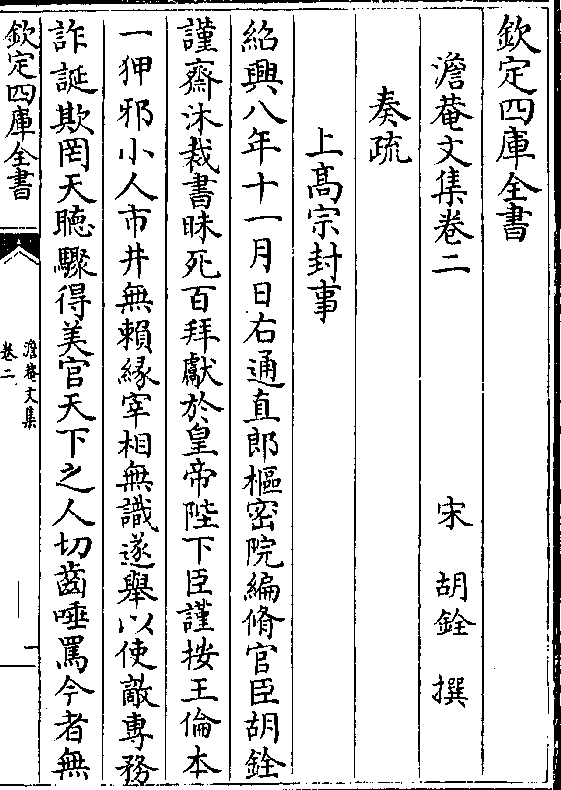 欽定四庫全書
澹菴文集卷二
宋 胡銓 撰
奏疏
上髙宗封事
紹興八年十一月日右通直郎樞密院編脩官臣胡銓
謹齋沐裁書昧死百拜獻於皇帝陛下臣謹按王倫本
一狎邪小人市井無賴緣宰相無識遂舉以使敵專務
詐誕欺罔天聴驟得美官天下之人切齒唾罵今者無
欽定四庫全書
澹菴文集
卷二
一